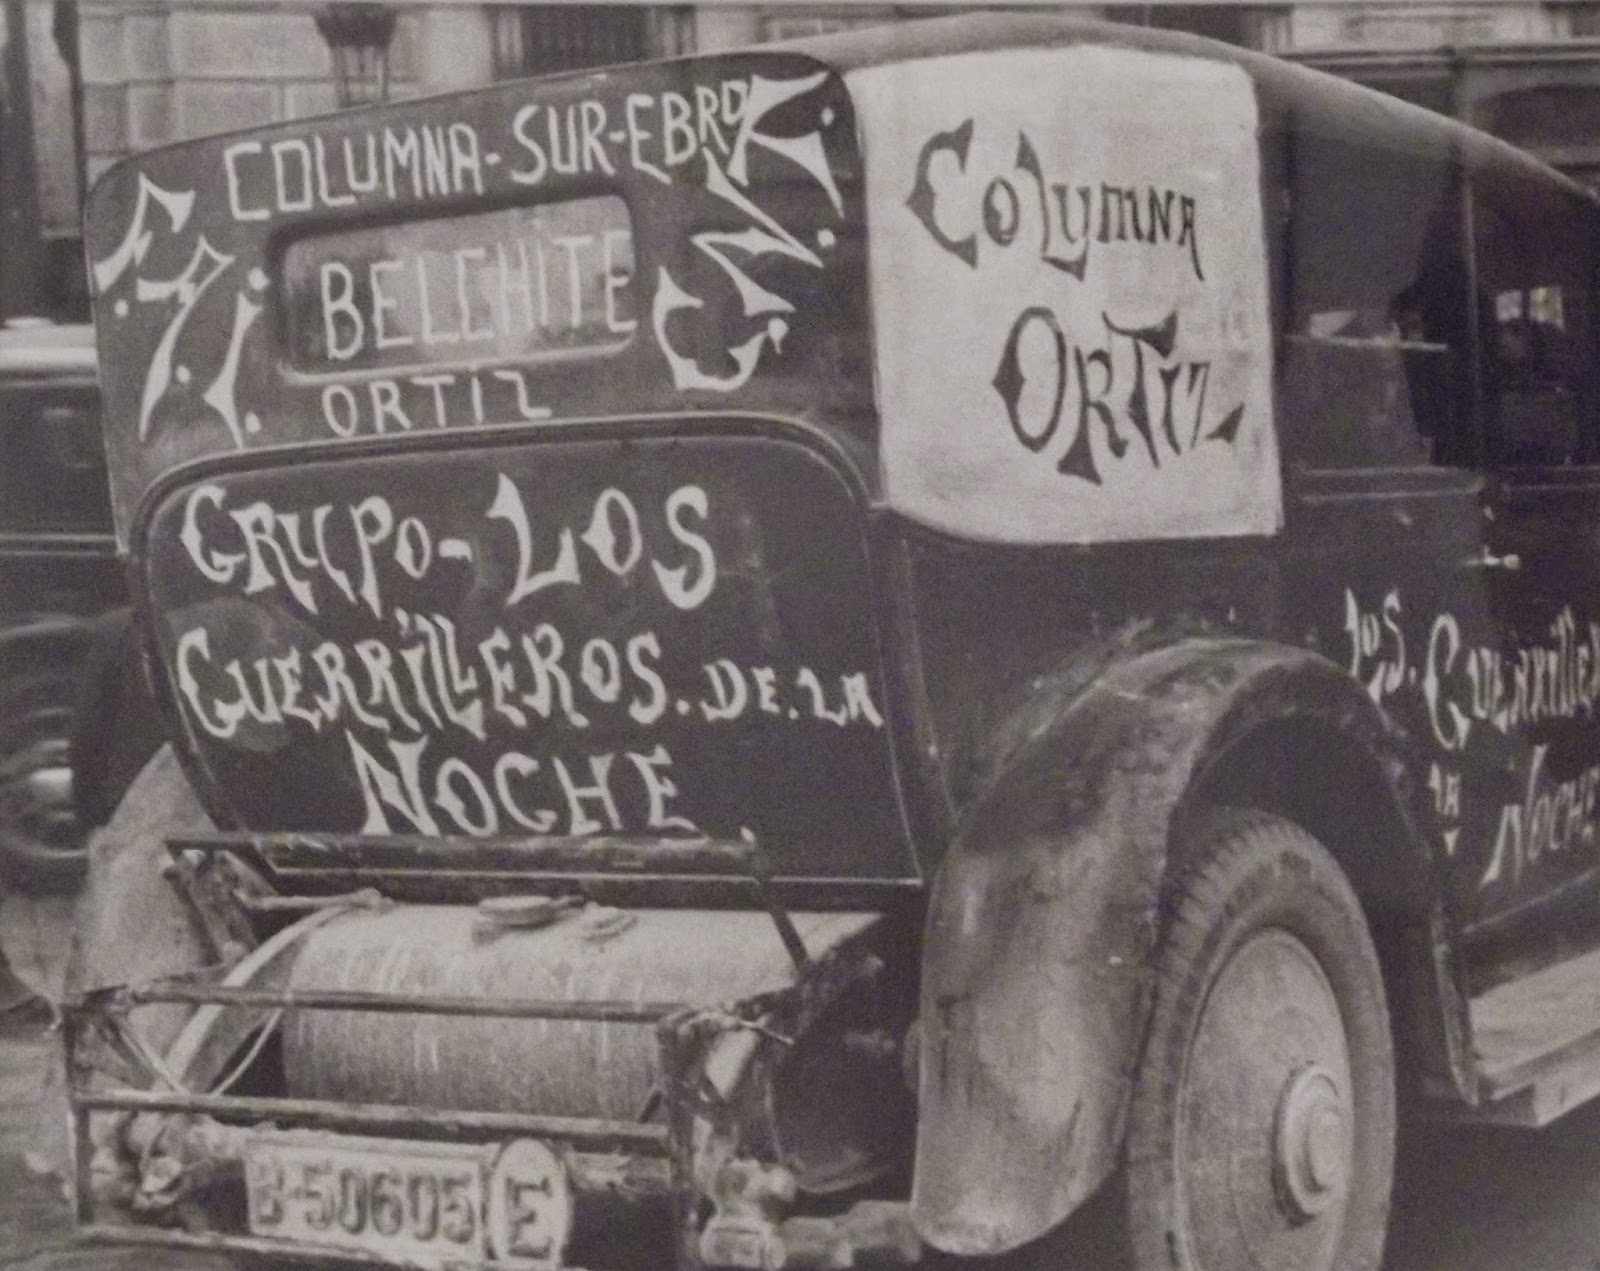 COLUMNA-SUR-EBRO
F.A.I.
C.N.T.
BELCHITE
ORTIZ
GRUPO-LOS
GUERRILLEROS.DE.LA
NOCHE
COLUMNA
ORTIZ
LOS. GUERRILLE
LA
NOCHE
B-50605 E